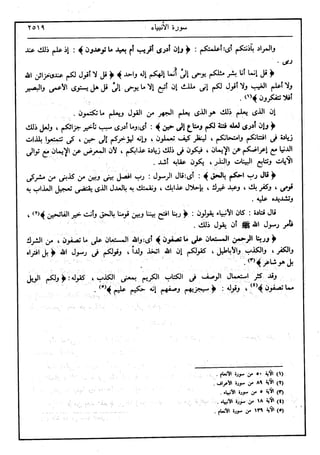 سورة الأنبياء
٢٥١٩
والمراد بآذنتكم أى: أعلمتكم : ﴿ وإن أدرى أقريب أم بعيد ما توعدون ﴾ : إذ علم ذلك عند
ربى .
﴿ قل إنما أنا بشر مثلكم يوحى إلى أنما إلهكم إله واحد ﴾ ﴿ قل لا أقول لكم عندى خزائن الله
ولا أعلم الغيب ولا أقول لكم إنى ملك إن أتبع إلا ما يوحى إلى قل هل يستوى الأعمى والبصير
أفلا تتفكرون ﴾(١) .
إن الذى يعلم ذلك هو الذى يعلم الجهر من القول ويعلم ما تكتمون .
﴿ وإن أدرى لعله فتنة لكم ومتاع إلى حين ﴾ : أى: وما أدرى سبب تأخير جزائكم ، ولعل ذلك
زيادة فى افتتانكم وامتحانكم ، لينظر كيف تعملون ، وإنه ليؤخركم إلى حين ، كى تتمتعوا بلذات
الدنيا مع إعراضكم عن الإيمان ، فيكون فى ذلك زيادة عذابكم ، لأن المعرض عن الإيمان مع توالى
الآيات وتتابع البينات والنذر ، يكون عقابه أشد .
﴿ قال رب احكم بالحق ﴾ : أى: قال الرسول : رب افصل بينى وبين من كذبنى من مشركى
قومى ، وكفر بك ، وعبد غيرك ، بإحلال عذابك ، ونقمتك به بالعدل الذى يقتضى تعجيل العذاب به
وتشديده عليه .
قال قتادة : كان الأنبياء يقولون : ﴿ ربنا افتح بيننا وبين قومنا بالحق وأنت خير الفاتحين ﴾(٢) ،
فأمر رسول الله ﷺ أن يقول ذلك .
﴿ وربنا الرحمن المستعان على ما تصفون ﴾ : أى: والله المستعان على ما تصفون ، من الشرك
والكفر ، والكذب والأباطيل ، كقولكم إن الله اتخذ ولداً ، وقولكم فى رسول الله ﷺ ﴿ بل افتراه
بل هو شاعر ﴾(٣) .
وقد كثر استعمال الوصف فى الكتاب الكريم بمعنى الكذب ، كقوله : ﴿ ولكم الويل
مما تصفون ﴾(٤) ، وقوله : ﴿ سيجزيهم وصفهم إنه حكيم عليم ﴾(٥) .
(١) الآية ٥٠ من سورة الأنعام .
(٢) الآية ٨٩ من سورة الأعراف .
(٣) الآية ٥ من سورة الأنبياء .
(٤) الآية ١٨ من سورة الأنبياء .
(٥) الآية ١٣٩ من سورة الأنعام .